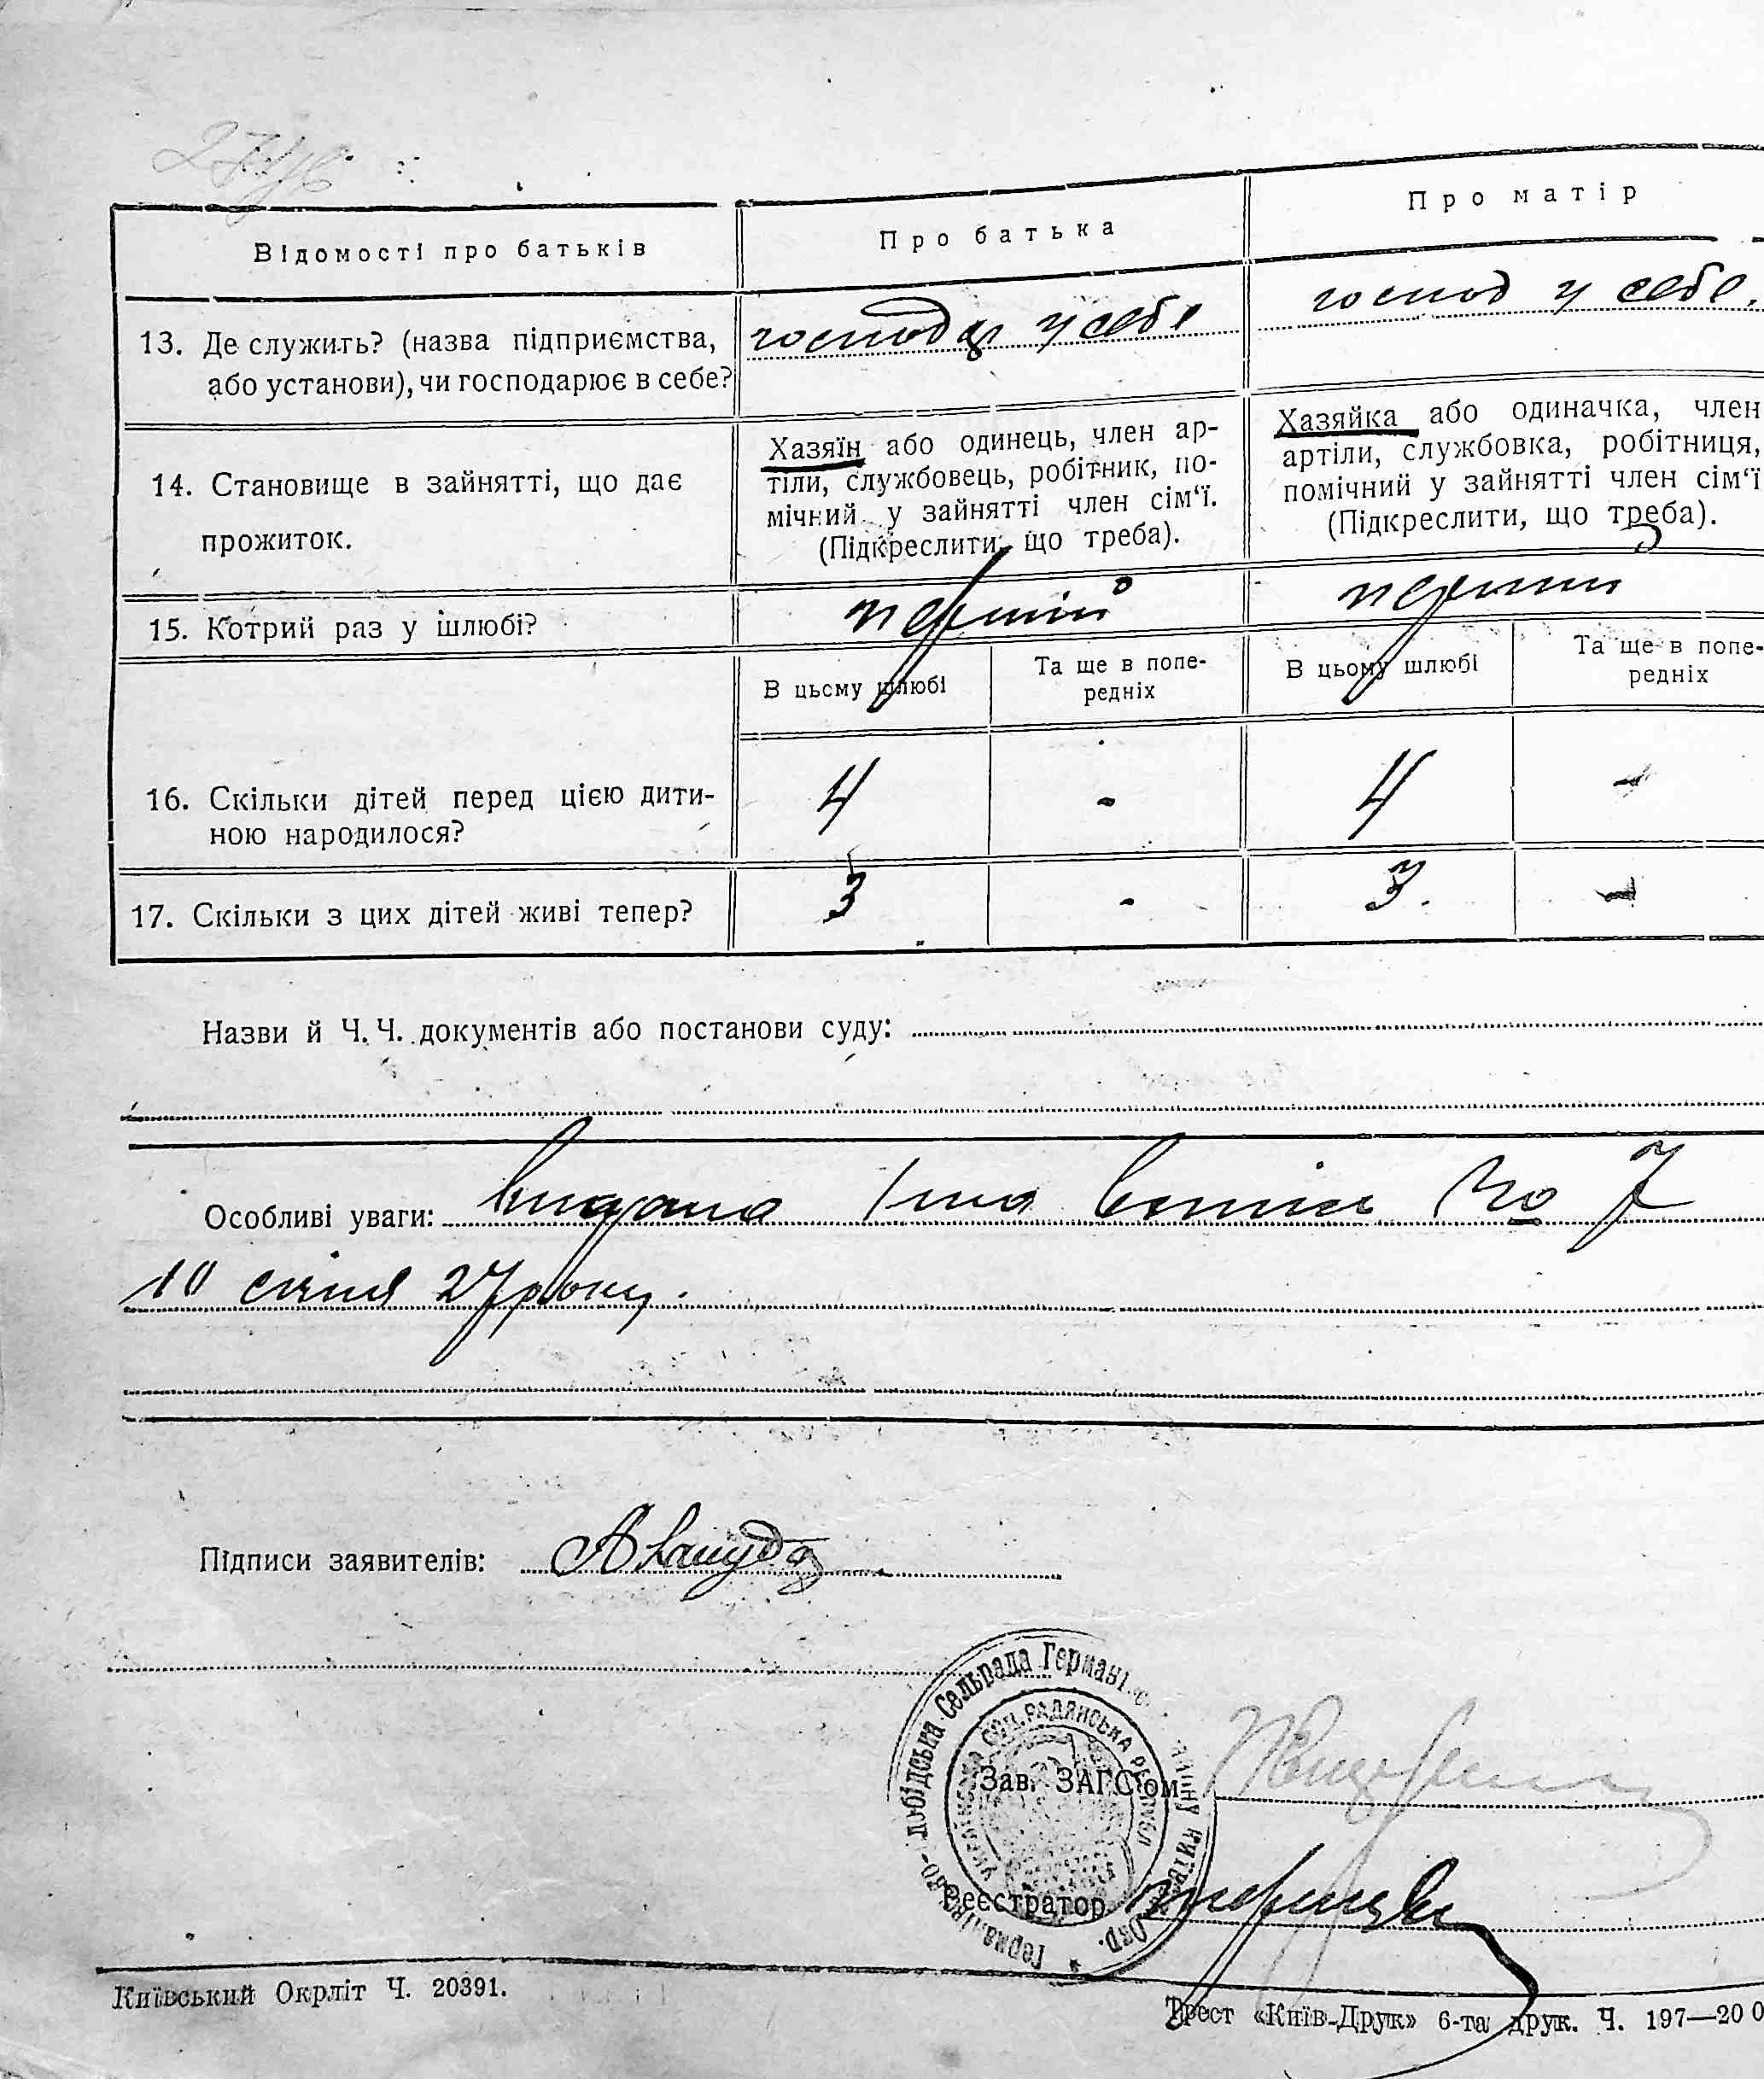 Відомості про батьків
Про батька
Про матір
13. Де служить? (назва підприємства,
або установи), чи господарює в себе?
господар у себе
господ у себе.
14. Становище в зайнятті, що дає
прожиток.
Хазяїн або одинець, член ар-
тіли, службовець, робітник, по-
мічний у зайнятті член сім'ї.
(Підкреслити, що треба).
Хазяйка або одиначка, член
артіли, службовка, робітниця,
помічний у зайнятті член сім'ї
(Підкреслити, що треба).
15. Котрий раз у шлюбі?
перший
перший
В цьому шлюбі
Та ще в попе-
редніх
В цьому шлюбі
Та ще в попе-
редніх
16. Скільки дітей перед цією дити-
ною народилося?
4
-
4
-
17. Скільки з цих дітей живі тепер?
3
-
3.
-
Назви й Ч.Ч. документів або постанови суду:
Особливі уваги: видана № 7
10 січня 27 року.
Підписи заявителів:
Сельрада
Українська Соц. Радянська Республ
Зав. ЗАГС'ом
Реєстратор
Київський Окрліт Ч. 20391.
Трест «Київ-Друк» 6-та друк. Ч. 197—200